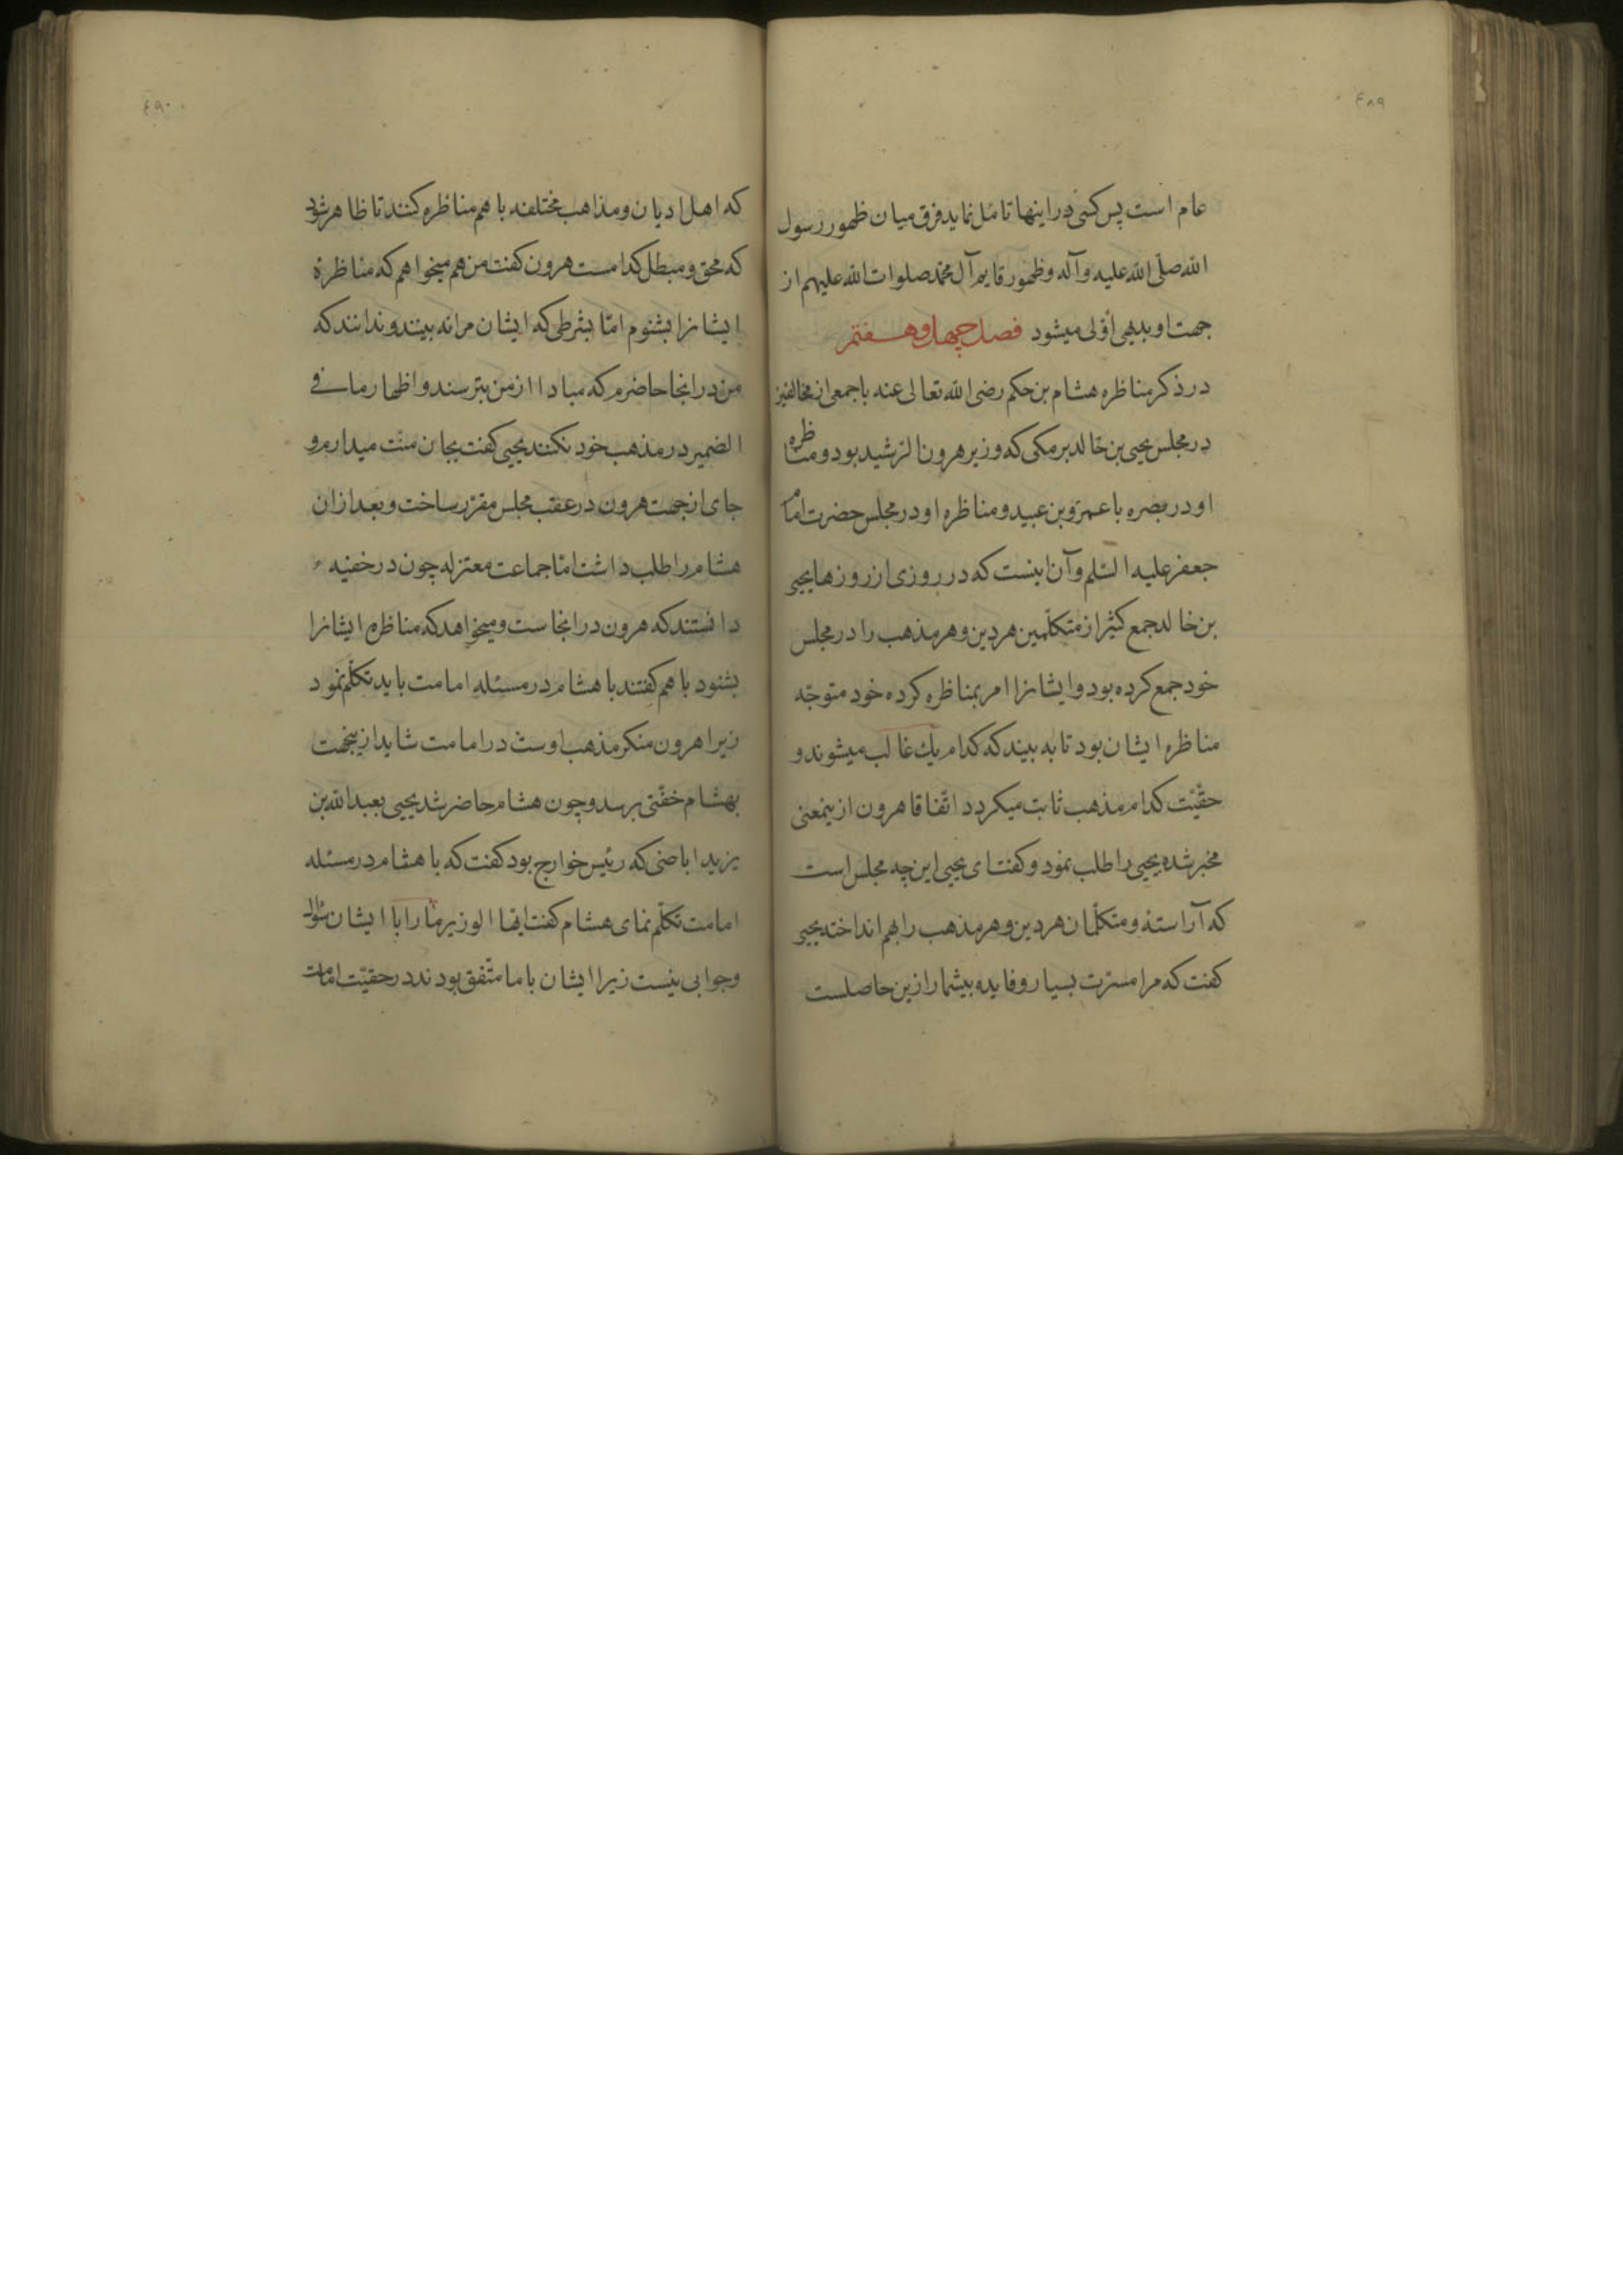 ٤٨٩
عام است پس کسی در اینها تامل نماید فرق میان ظهور رسول
الله صلّی الله علیه وآله وظهور قایم آل محمّد صلوات الله علیهم از
جهت او بدیهی اوّلی میشود فصل چهل و هفتم
در ذکر مناظره هشام بن حکم رضی الله تعالی عنه با جمعی از مخالفین
در مجلس یحیی بن خالد برمکی که وزیر هرون الرّشید بود و مناظره
او در بصره با عمرو بن عبید و مناظره او در مجلس حضرت امام
جعفر علیه السّلم و آن اینست که در روزی از روزها یحیی
بن خالد جمع کثیر از متکلّمین هر دین و هر مذهب را در مجلس
خود جمع کرده بود و ایشانرا امر بمناظره کرده خود متوجّه
مناظره ایشان بود تا به بیند که کدام یك غالب میشوند و
حقّیّت کدام مذهب ثابت میکردد اتّفاقا هرون ازینمعنی
مخبر شده یحیی را طلب نمود و کفت ای یحیی این چه مجلس است
که آراستهٔ و متکلّمان هر دین و هر مذهب را بهم انداخته یحیی
کفت که مرا مسرّت بسیار و فایده بیشمار ازین حاصلست
٤٩٠
که اهل ادیان و مذاهب مختلفه با هم مناظره کنند تا ظاهر شود
که محق و مبطل کدامست هرون کفت من هم میخواهم که مناظرهٔ
ایشانرا بشنوم امّا بشرطی که ایشان مرا نه بینند و ندانند که
من در انجا حاضرم که مبادا از من بترسند و اظهار ما فی
الضمیر در مذهب خود نکنند یحیی کفت بجان منّت میدارم و
جای از جهت هرون در عقب مجلس مقرّر ساخت و بعد از ان
هشام را طلب داشت امّا جماعت معتزله چون در خفیه
دانستند که هرون در انجاست و میخواهد که مناظره ایشانرا
بشنود با هم کفتند با هشام در مسئله امامت باید تکلّم نمود
زیرا هرون منکر مذهب اوست در امامت شاید ازینجهت
بهشام خفّتی برسد و چون هشام حاضر شد یحیی بعبد الله بن
یزید اباضی که رئیس خوارج بود کفت که با هشام در مسئله
امامت تکلّم نمای هشام کفت ایّها الوزیر ما را با ایشان سؤال
و جوابی نیست زیرا ایشان با ما متّفق بودند در حقیّت امامت